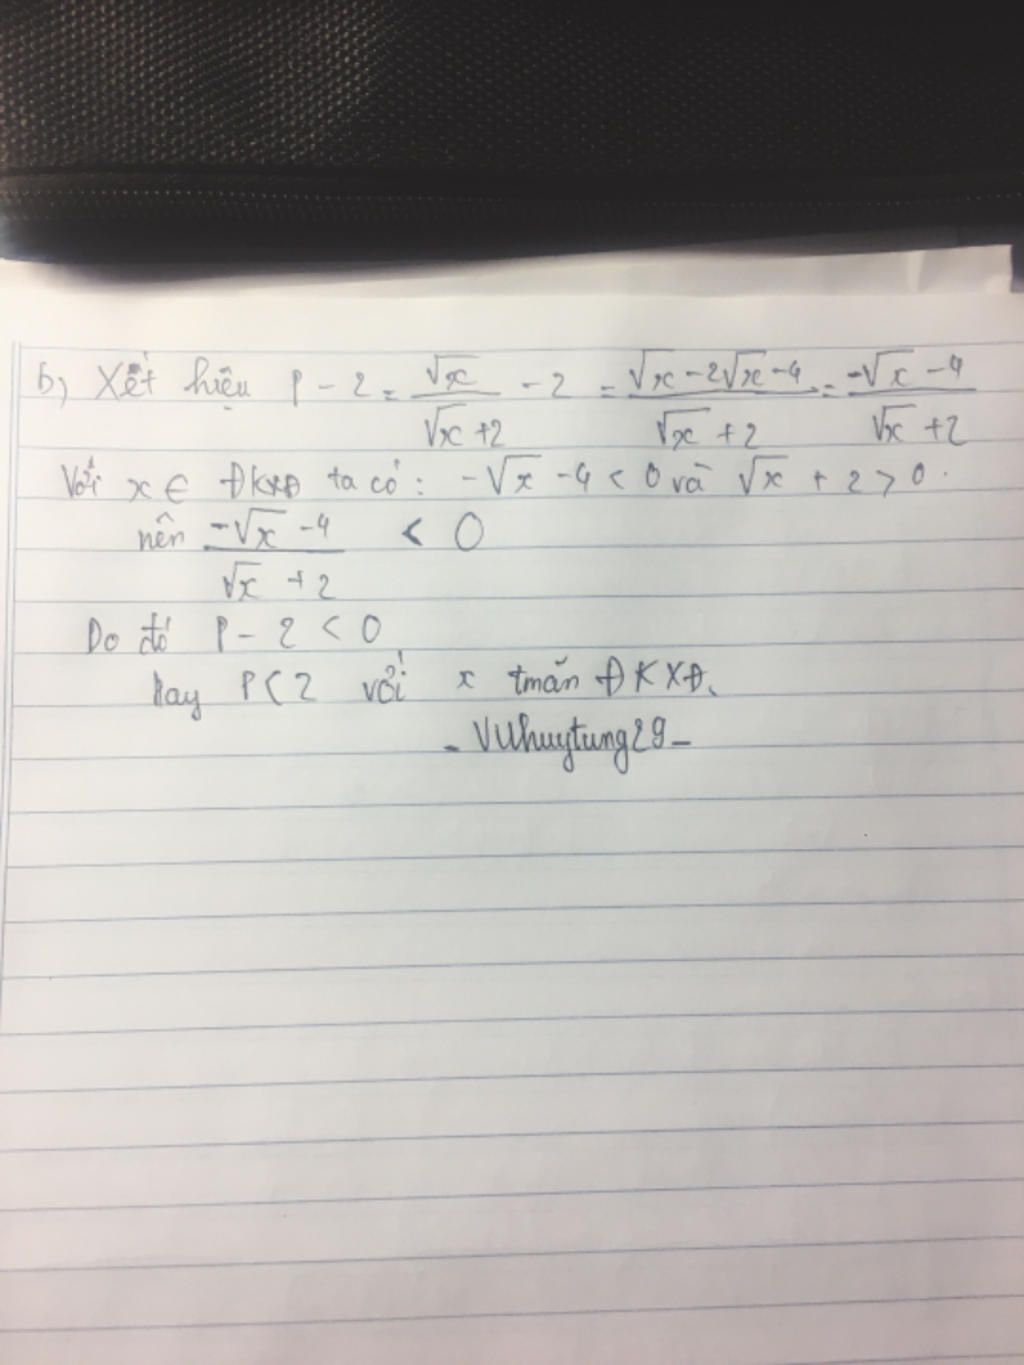 b) Xét hiệu P - 2 = √x / (√x + 2) - 2 = (√x - 2√x - 4) / (√x + 2) = (-√x - 4) / (√x + 2)
Với x ∈ ĐKXĐ ta có: -√x - 4 < 0 và √x + 2 > 0.
nên (-√x - 4) / (√x + 2) < 0
Do đó P - 2 < 0
hay P < 2 với x tmãn ĐKXĐ.
- VUhuytung29 -